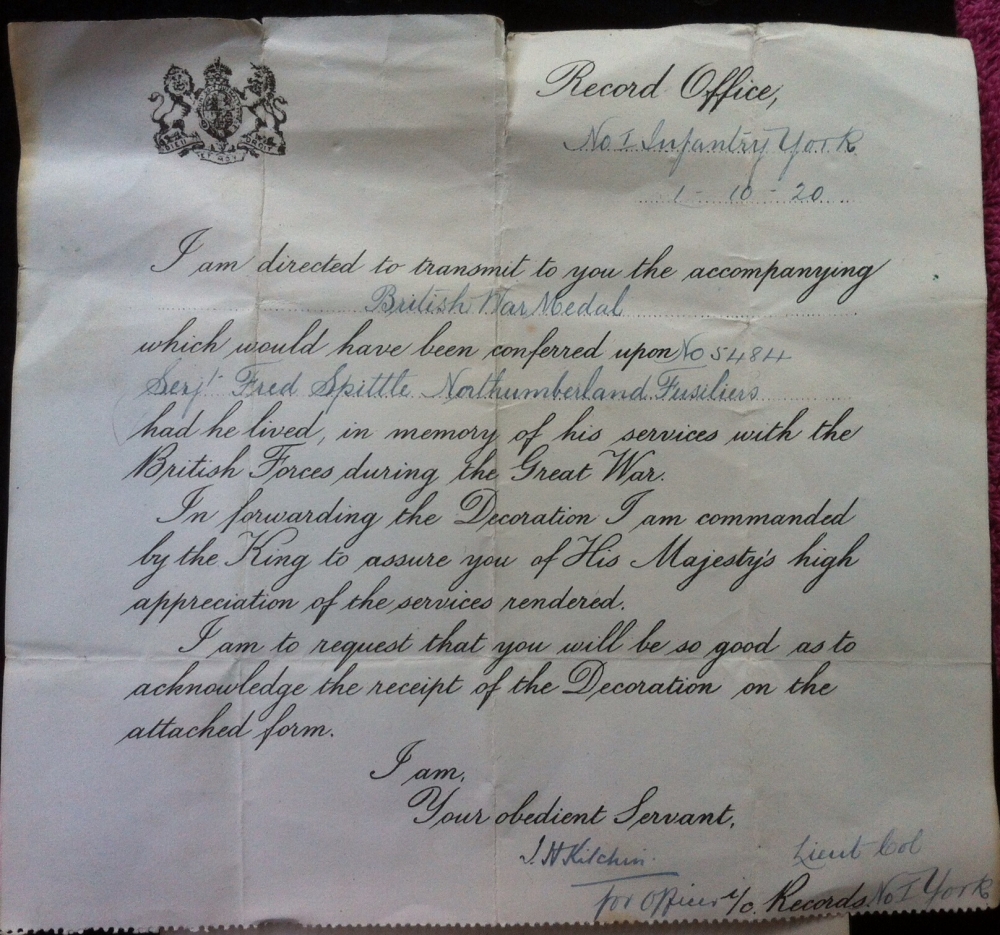 DIEU ET MON DROIT
Record Office,
No I Infantry York
1 - 10 - 20
I am directed to transmit to you the accompanying
British War Medal
which would have been conferred upon No 5484
Serjt Fred Spittle Northumberland Fusiliers
had he lived, in memory of his services with the
British Forces during the Great War.
In forwarding the Decoration I am commanded
by the King to assure you of His Majesty's high
appreciation of the services rendered.
I am to request that you will be so good as to
acknowledge the receipt of the Decoration on the
attached form.
I am,
Your obedient Servant,
Lieut Col
for Officer i/c Records No I York